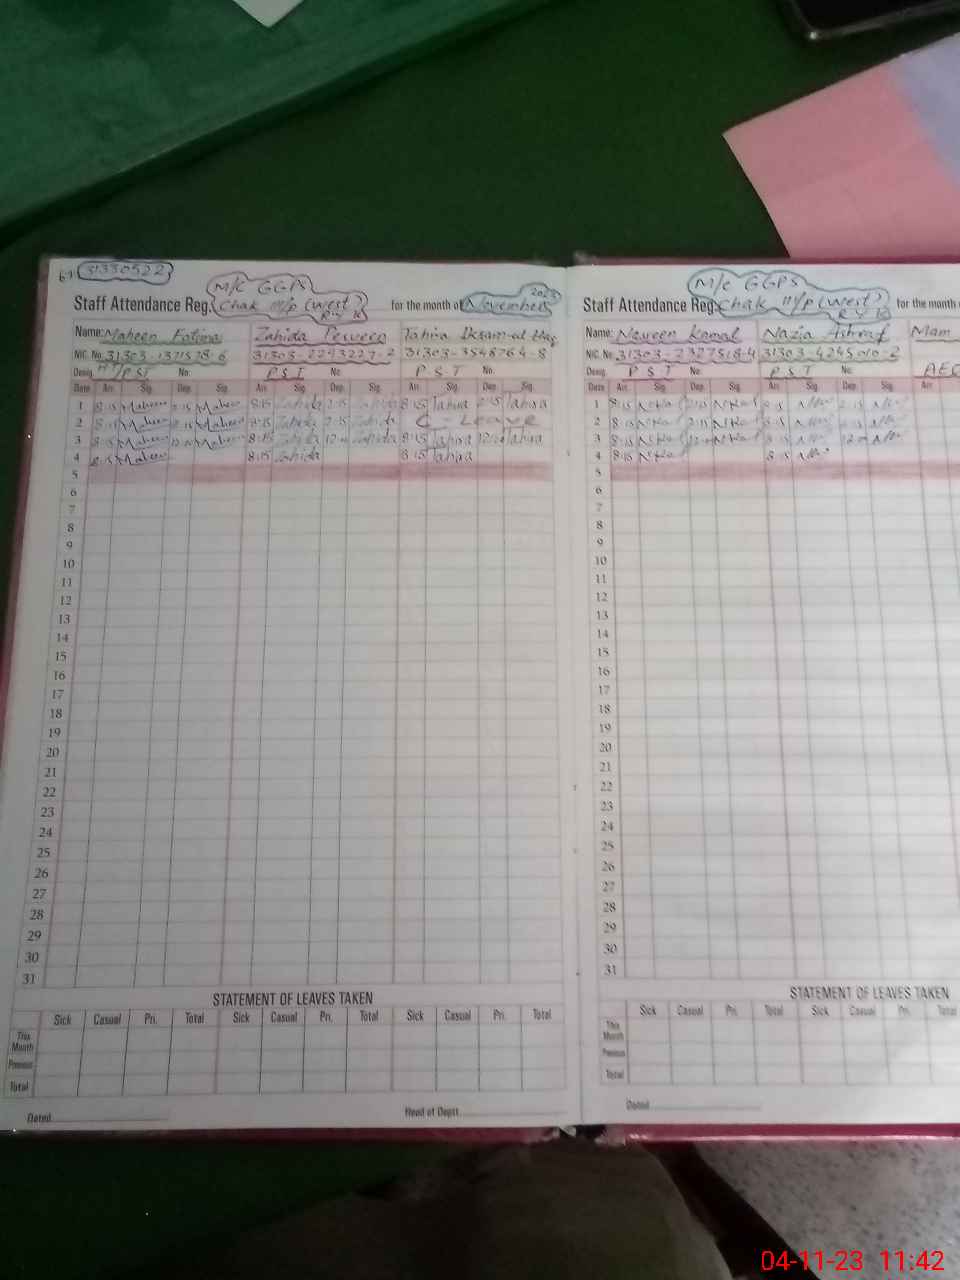 31330522
M/C GGPS
Staff Attendance Reg. Chak 111/p (West) for the month of November 2023
R Y K
Name: Maheen Fatima Zahida Perveen Tahira Ikram-ul-Haq
NIC. No. 31303-2293227-2 31303-3548764-8
Desig. HT/PST No. PST No. PST No.
Date Arr. Sig. Dep. Sig. Arr. Sig. Dep. Sig. Arr. Sig. Dep. Sig.
1 8:15 Maheen 2:15 Maheen 8:15 Zahida 2:15 Zahida 8:15 Tahira 2:15 Tahira
2 8:15 Maheen 2:15 Maheen 8:15 Zahida 2:15 Zahida C - Leave
3 8:15 Maheen 12:00 Maheen 8:15 Zahida 12:00 Zahida 8:15 Tahira 12:00 Tahira
4 8:15 Maheen 8:15 Zahida 8:15 Tahira
5
6
7
8
9
10
11
12
13
14
15
16
17
18
19
20
21
22
23
24
25
26
27
28
29
30
31
STATEMENT OF LEAVES TAKEN
Sick Casual Pri. Total Sick Casual Pri. Total Sick Casual Pri. Total
This Month
Previous
Total
Dated Head of Deptt.
M/C GGPS
Staff Attendance Reg. Chak 111/p (West) for the month
R Y K
Name: Nazia Ashraf Mam
NIC. No. 31303-2327518-4 31303-4245010-2
Desig. PST No. PST No. AEO
Date Arr. Sig. Dep. Sig. Arr. Sig. Dep. Sig. Arr.
1 8:15 2:15 8:15 2:15
2 8:15 2:15 8:15 2:15
3 8:15 12:00 8:15 12:00
4 8:15 8:15
5
6
7
8
9
10
11
12
13
14
15
16
17
18
19
20
21
22
23
24
25
26
27
28
29
30
31
STATEMENT OF LEAVES TAKEN
Sick Casual Pri. Total Sick Casual Pri. Total
This Month
Previous
Total
Dated
04-11-23 11:42